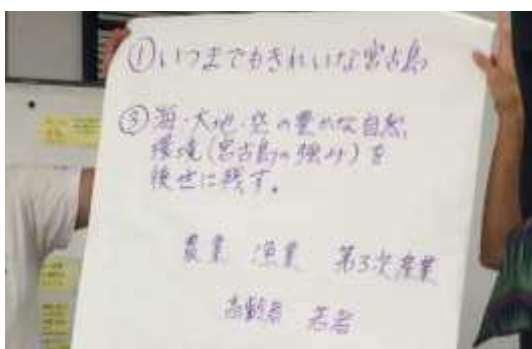 ①いつまでもきれいな宮古島
③海・大地・空の豊かな自然
環境(宮古島の強み)を
後世に残す。
農業 漁業 第3次産業
高齢者 若者